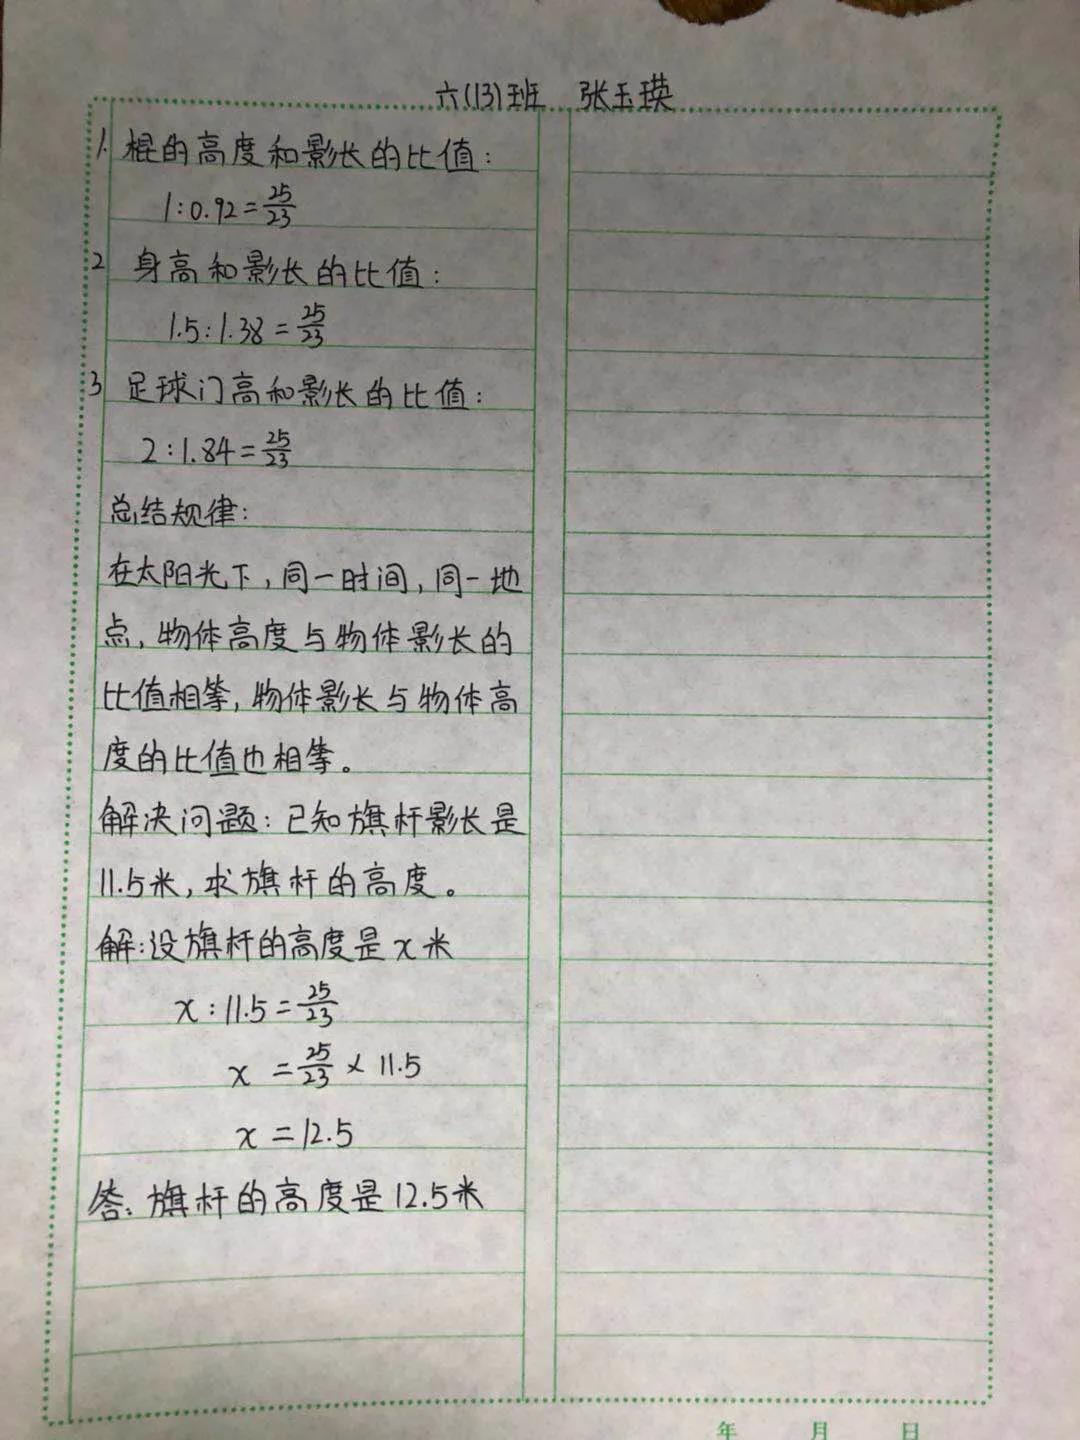 六(13)班 张玉瑛
1. 棍的高度和影长的比值:
1:0.92=25/23
2 身高和影长的比值:
1.5:1.38=25/23
3 足球门高和影长的比值:
2:1.84=25/23
总结规律:
在太阳光下,同一时间,同一地
点,物体高度与物体影长的
比值相等,物体影长与物体高
度的比值也相等。
解决问题:已知旗杆影长是
11.5米,求旗杆的高度。
解:设旗杆的高度是x米
x:11.5=25/23
x=25/23×11.5
x=12.5
答:旗杆的高度是12.5米
年 月 日